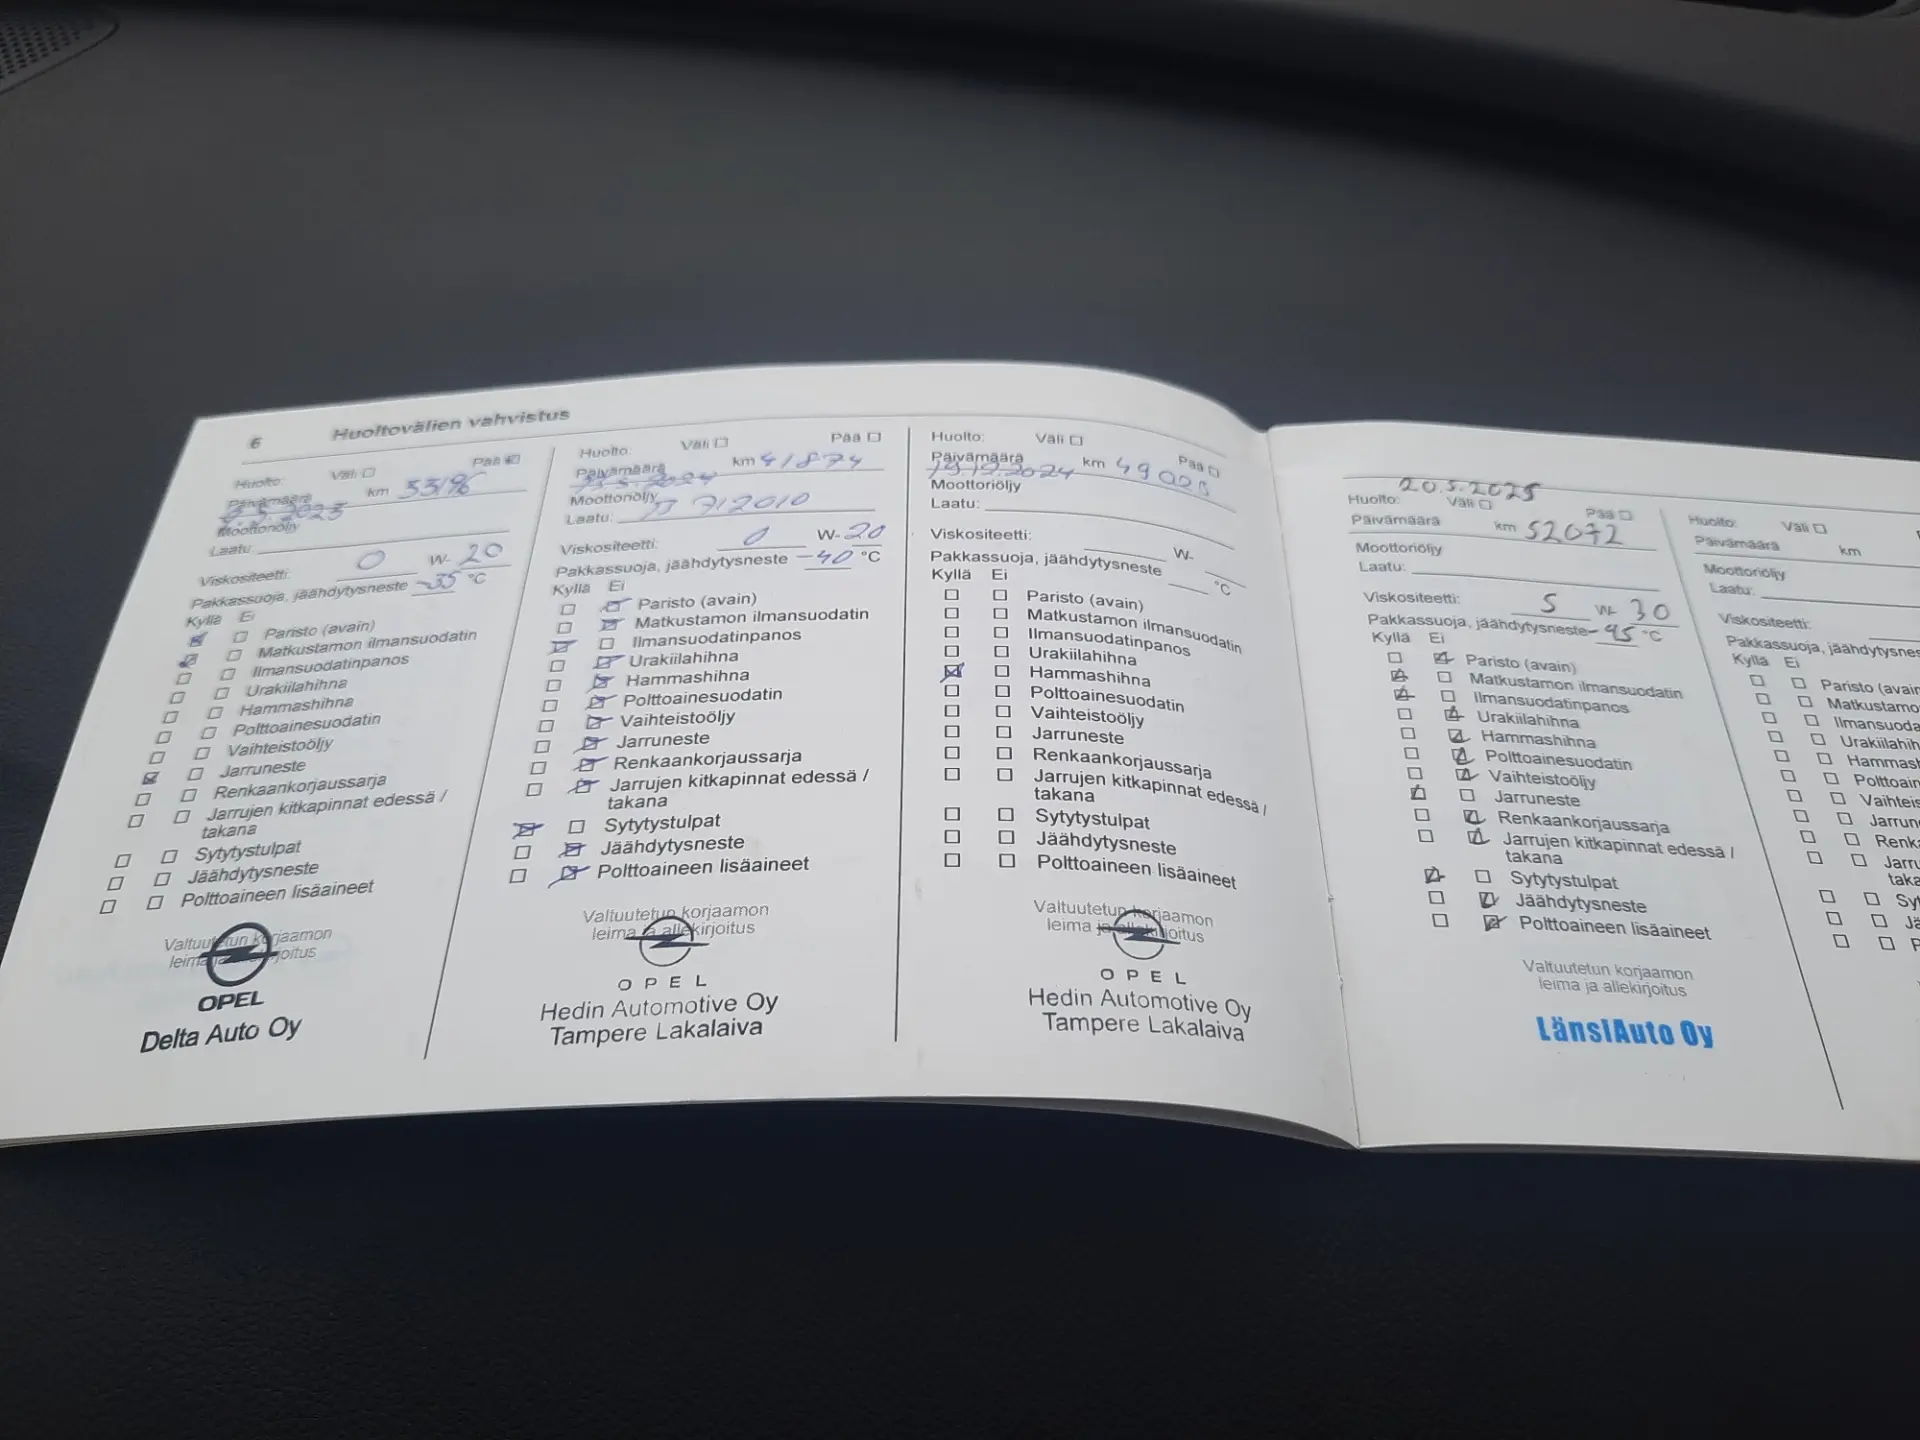 6 Huoltovälien vahvistus
Huolto: Väli Pää
Päivämäärä km 33196
2023
Moottoriöljy
Laatu:
Viskositeetti: 0 W- 20
Pakkassuoja, jäähdytysneste -35 °C
Kyllä Ei
Paristo (avain)
Matkustamon ilmansuodatin
Ilmansuodatinpanos
Urakiilahihna
Hammashihna
Polttoainesuodatin
Vaihteistoöljy
Jarruneste
Renkaankorjaussarja
Jarrujen kitkapinnat edessä /
takana
Sytytystulpat
Jäähdytysneste
Polttoaineen lisäaineet
Valtuutetun korjaamon
leima ja allekirjoitus
OPEL
Delta Auto Oy
Huolto: Väli Pää
Päivämäärä km 41874
5.2024
Moottoriöljy
Laatu: 712010
Viskositeetti: 0 W- 20
Pakkassuoja, jäähdytysneste -40 °C
Kyllä Ei
Paristo (avain)
Matkustamon ilmansuodatin
Ilmansuodatinpanos
Urakiilahihna
Hammashihna
Polttoainesuodatin
Vaihteistoöljy
Jarruneste
Renkaankorjaussarja
Jarrujen kitkapinnat edessä /
takana
Sytytystulpat
Jäähdytysneste
Polttoaineen lisäaineet
Valtuutetun korjaamon
leima ja allekirjoitus
OPEL
Hedin Automotive Oy
Tampere Lakalaiva
Huolto: Väli Pää
Päivämäärä km
19.12.2024
Moottoriöljy
Laatu:
Viskositeetti: W-
Pakkassuoja, jäähdytysneste °C
Kyllä Ei
Paristo (avain)
Matkustamon ilmansuodatin
Ilmansuodatinpanos
Urakiilahihna
Hammashihna
Polttoainesuodatin
Vaihteistoöljy
Jarruneste
Renkaankorjaussarja
Jarrujen kitkapinnat edessä /
takana
Sytytystulpat
Jäähdytysneste
Polttoaineen lisäaineet
Valtuutetun korjaamon
leima ja allekirjoitus
OPEL
Hedin Automotive Oy
Tampere Lakalaiva
20.5.2025
Huolto: Väli Pää
Päivämäärä km 52072
Moottoriöljy
Laatu:
Viskositeetti: 5 W- 30
Pakkassuoja, jäähdytysneste -45 °C
Kyllä Ei
Paristo (avain)
Matkustamon ilmansuodatin
Ilmansuodatinpanos
Urakiilahihna
Hammashihna
Polttoainesuodatin
Vaihteistoöljy
Jarruneste
Renkaankorjaussarja
Jarrujen kitkapinnat edessä /
takana
Sytytystulpat
Jäähdytysneste
Polttoaineen lisäaineet
Valtuutetun korjaamon
leima ja allekirjoitus
LänsiAuto Oy
Huolto: Väli
Päivämäärä km
Moottoriöljy
Laatu:
Viskositeetti:
Pakkassuoja, jäähdytysnes
Kyllä Ei
Paristo (avain
Matkustamo
Ilmansuoda
Urakiilahih
Hammash
Polttoain
Vaihteis
Jarrun
Renka
Jarru
taka
Syt
Jä
P